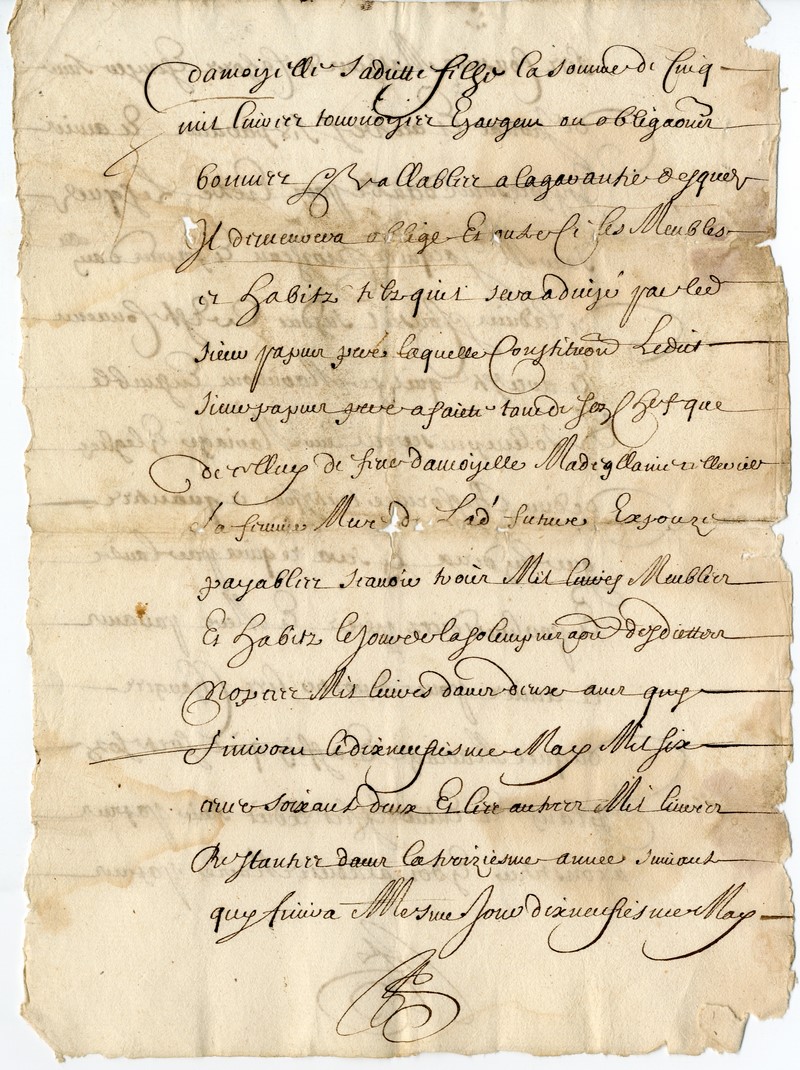 damoizelle sadicte fille la somme de Cinq
mil livres tournoizes En argent ou obligaons
bonnes & vallables a la garantie desquelz
Il demeurera oblige Et outre ce les Meubles
et Habitz telz quil sera advizé par led
sieur papun pere laquelle Constituon Ledict
sieur papun pere a faicte tant de son Chef que
de celluy de feue damoizelle Magdellaine
sa femme Mere de Lad future Expouze
payables scavoir trois Mil livres Meubles
Et Habitz le Jour de la solempnizaon desdictes
Nopces Mil livres dans deux ans quy
finiront le dixneufiesme May Mil six
cens soixante deux Et les autres Mil livres
Restantes dans la troiziesme annee suivant
quy finira Mesme Jour dixneufiesme May